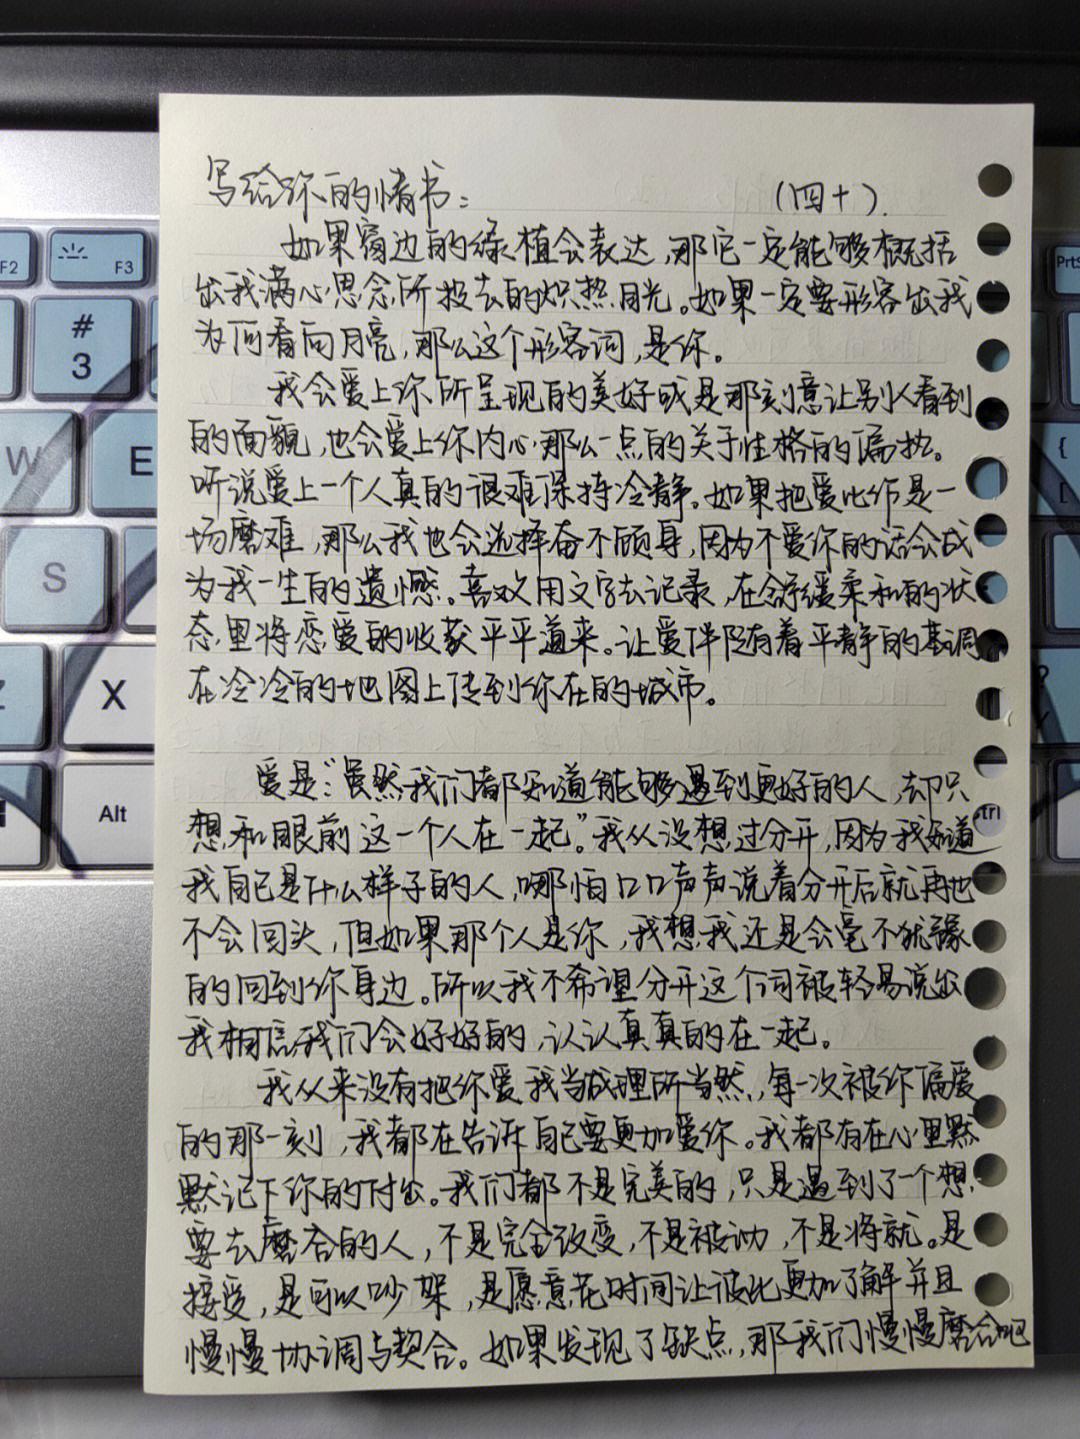 写给你的情书：（四十）.
如果窗边的绿植会表达，那它一定能够概括
出我满心思念所投去的炽热目光。如果一定要形容出我
为何看向月亮，那么这个形容词，是你。
我会爱上你所呈现的美好或是那刻意让别人看到
的面貌，也会爱上你内心那么一点的关于性格的偏执。
听说爱上一个人真的很难保持冷静。如果把爱比作是一
场磨难，那么我也会选择奋不顾身，因为不爱你的话会成
为我一生的遗憾。喜欢用文字去记录，在舒缓柔和的状
态里将恋爱的收获平平道来。让爱伴随有着平静的基调，
在冷冷的地图上传到你在的城市。
爱是：“虽然我们都知道能够遇到更好的人，却只
想和眼前这一个人在一起。”我从没想过分开，因为我知道
我自己是什么样子的人，哪怕口口声声说着分开后就再也
不会回头，但如果那个人是你，我想我还是会毫不犹豫
的回到你身边。所以我不希望分开这个词被轻易说出
我相信我们会好好的，认认真真的在一起。
我从来没有把你爱我当成理所当然，每一次被你偏爱
的那一刻，我都在告诉自己要更加爱你。我都有在心里默
默记下你的付出。我们都不是完美的，只是遇到了一个想
要去磨合的人，不是完全改变，不是被动，不是将就。是
接受，是可以吵架，是愿意花时间让彼此更加了解并且
慢慢协调与契合。如果发现了缺点，那我们慢慢磨合吧
F2
F3
#
3
W
E
S
Z
X
Alt
PrtS
{
[
?
trl